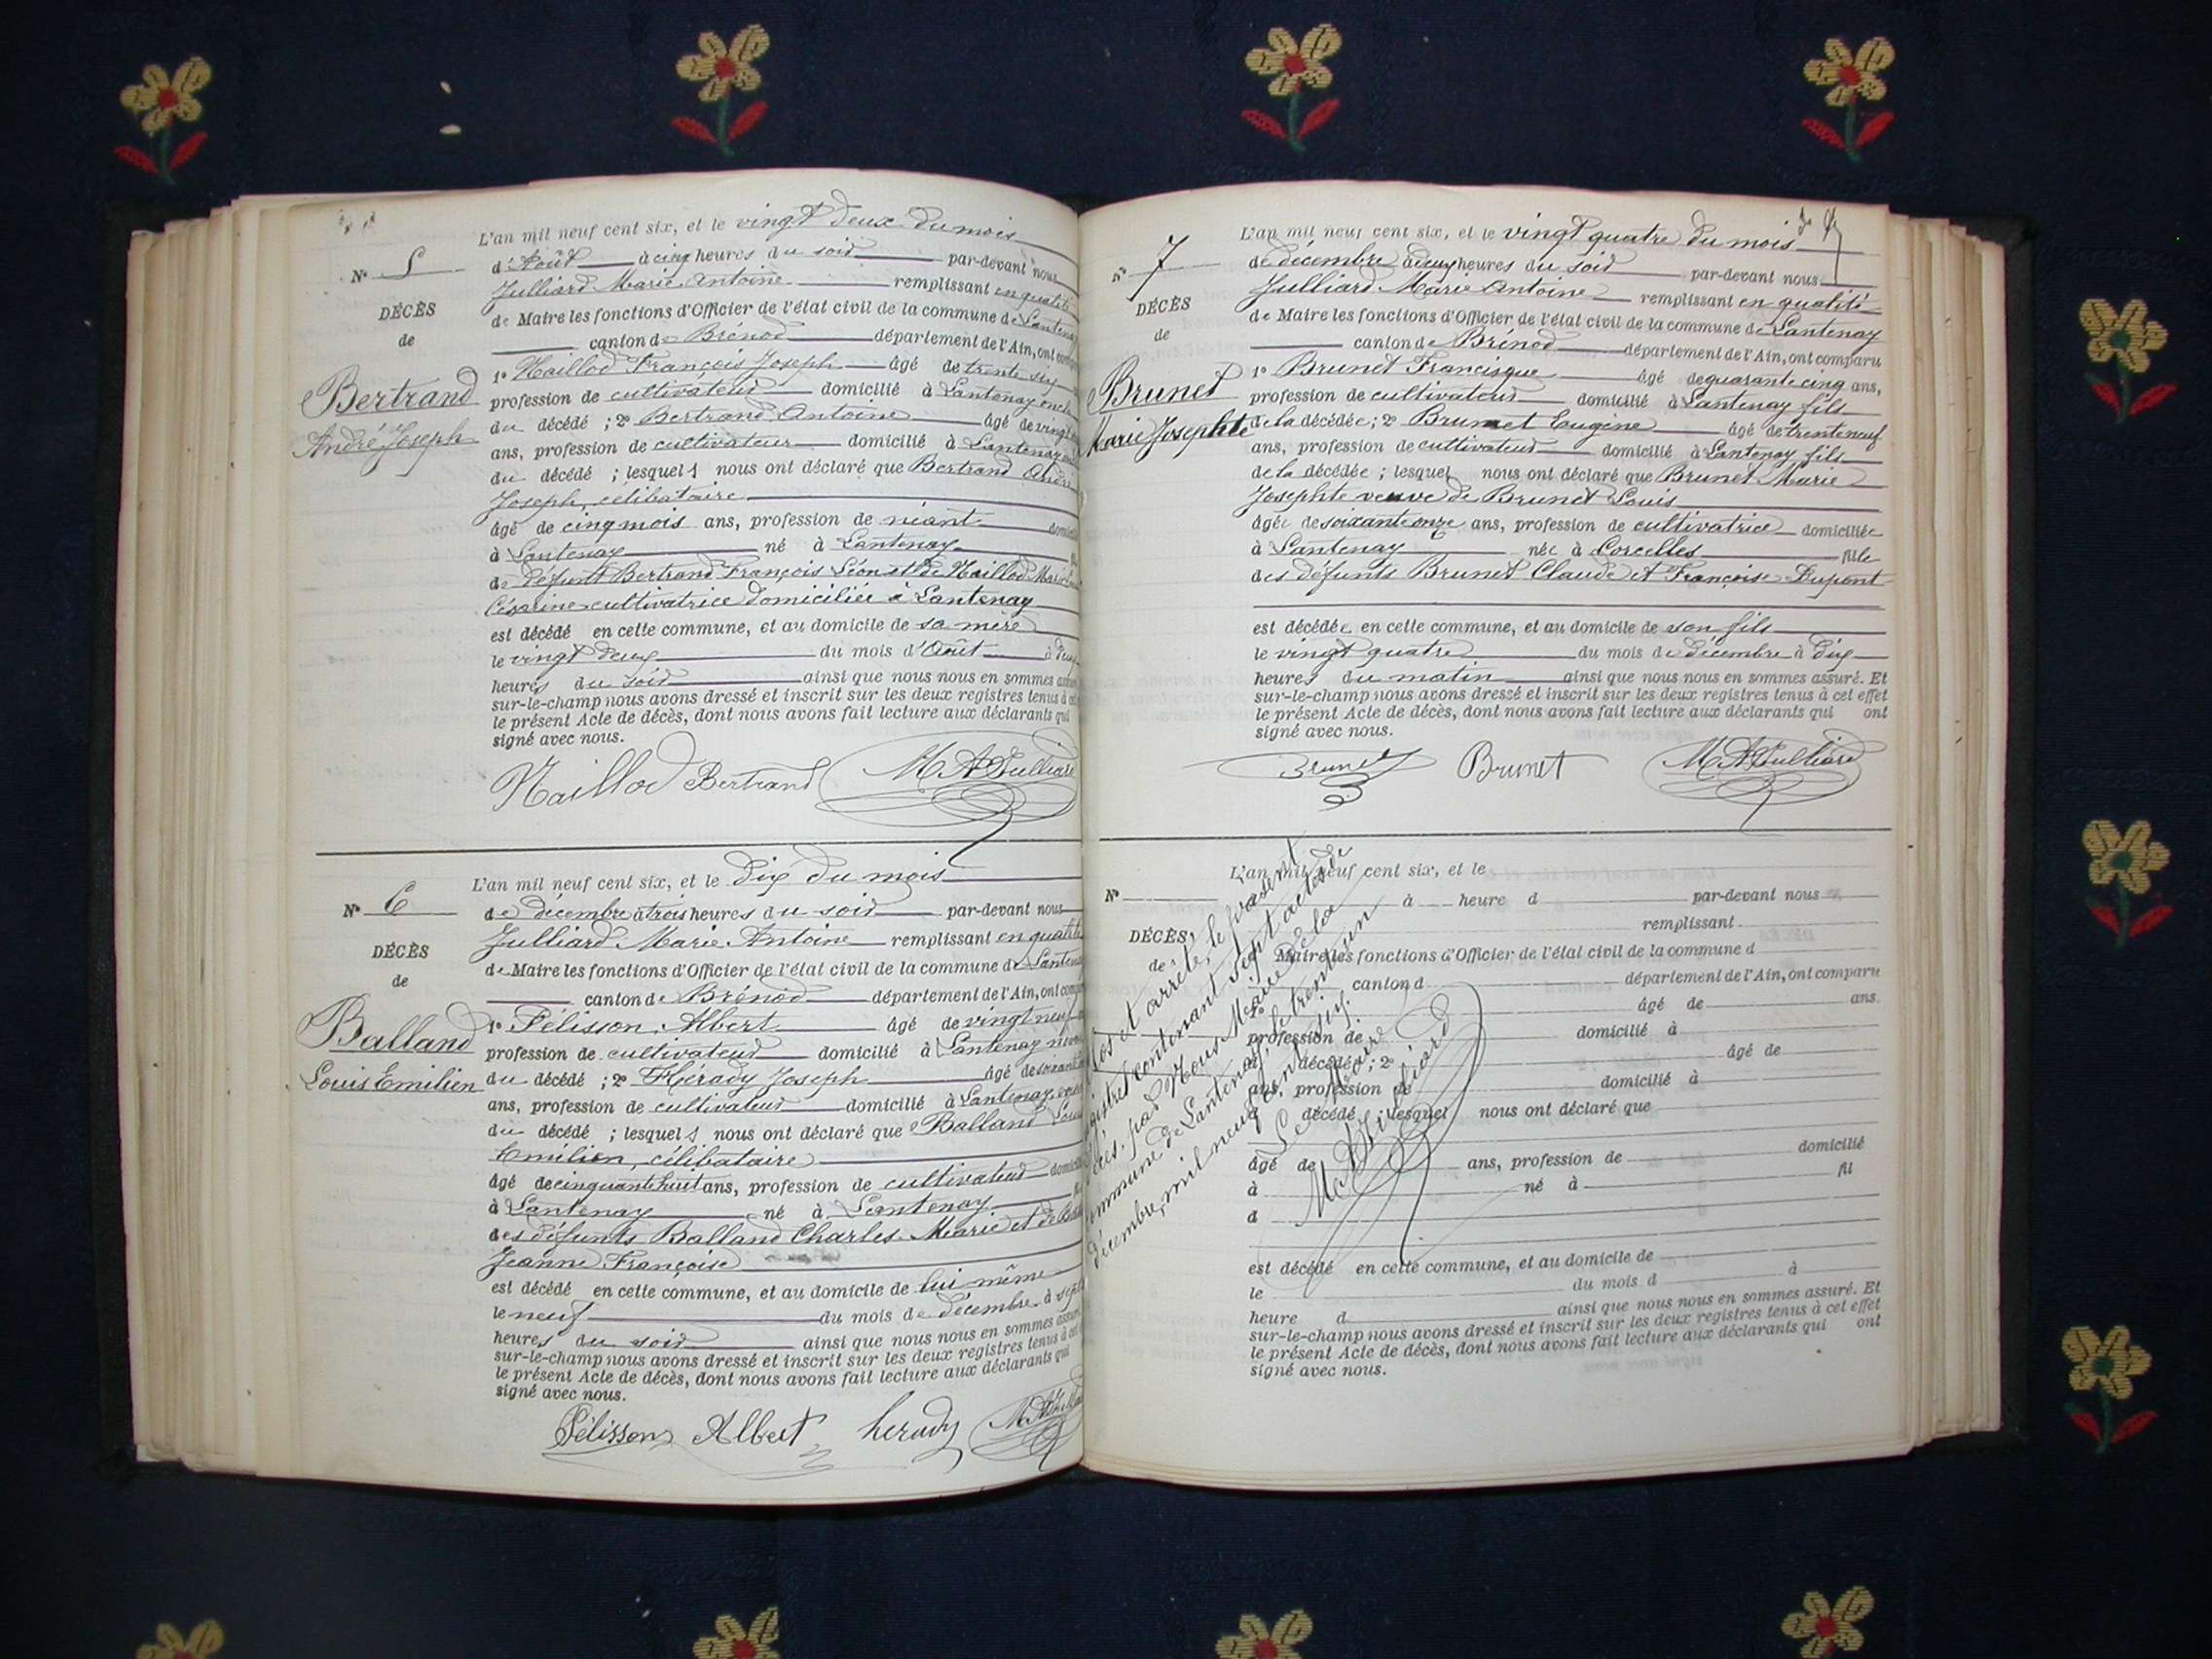 L'an mil neuf cent six, et le vingt deux du mois
N° 5
d'Août à cinq heures du soir par-devant nous
DÉCÈS
Julliard Marie Antoine remplissant en qualité
de
de Maire les fonctions d'Officier de l'état civil de la commune de Lantenay
canton de Brénod département de l'Ain, ont
Bertrand
1° Maillod François Joseph âgé de trente six
profession de cultivateur domicilié à Lantenay oncle
André Joseph
du décédé ; 2° Bertrand Antoine âgé de vingt
ans, profession de cultivateur domicilié à Lantenay
du décédé ; lesquels nous ont déclaré que Bertrand André
Joseph, célibataire
âgé de cinq mois ans, profession de néant
à Lantenay né à Lantenay
de défunt Bertrand François Léon et de Maillod Marie
Césarine cultivatrice domiciliée à Lantenay
est décédé en cette commune, et au domicile de sa mère
le vingt deux du mois d'Août à deux
heures du soir ainsi que nous nous en sommes
sur-le-champ nous avons dressé et inscrit sur les deux registres tenus à
le présent Acte de décès, dont nous avons fait lecture aux déclarants qui
signé avec nous.
Maillod Bertrand M A Julliard
L'an mil neuf cent six, et le dix du mois
N° 6
de décembre à trois heures du soir par-devant nous
DÉCÈS
Julliard Marie Antoine remplissant en qualité
de
de Maire les fonctions d'Officier de l'état civil de la commune de Lantenay
canton de Brénod département de l'Ain, ont
Balland
1° Pélisson Albert âgé de vingt neuf
profession de cultivateur domicilié à Lantenay
Louis Emilien
du décédé ; 2° Hérady Joseph âgé de
ans, profession de cultivateur domicilié à Lantenay
du décédé ; lesquels nous ont déclaré que Balland Louis
Emilien, célibataire
âgé de cinquante huit ans, profession de cultivateur
à Lantenay né à Lantenay
des défunts Balland Charles Marie et de
Jeanne Françoise
est décédé en cette commune, et au domicile de lui même
le neuf du mois de décembre à sept
heures du soir ainsi que nous nous en sommes
sur-le-champ nous avons dressé et inscrit sur les deux registres tenus à
le présent Acte de décès, dont nous avons fait lecture aux déclarants qui
signé avec nous.
Pélisson Albert herady M A Julliard
L'an mil neuf cent six, et le vingt quatre du mois
N° 7
de décembre à deux heures du soir par-devant nous
DÉCÈS
Julliard Marie Antoine remplissant en qualité
de
de Maire les fonctions d'Officier de l'état civil de la commune de Lantenay
canton de Brénod département de l'Ain, ont comparu
Brunet
1° Brunet Francisque âgé de quarante cinq ans,
profession de cultivateur domicilié à Lantenay fils
Marie Josephte
de la décédée ; 2° Brunet Eugène âgé de trente neuf
ans, profession de cultivateur domicilié à Lantenay fils
de la décédée ; lesquel nous ont déclaré que Brunet Marie
Josephte veuve de Brunet Louis
âgée de soixante onze ans, profession de cultivatrice domiciliée
à Lantenay née à Corcelles fille
des défunts Brunet Claude et Françoise Dupont
est décédée en cette commune, et au domicile de son fils
le vingt quatre du mois de décembre à dix
heures du matin ainsi que nous nous en sommes assuré. Et
sur-le-champ nous avons dressé et inscrit sur les deux registres tenus à cet effet
le présent Acte de décès, dont nous avons fait lecture aux déclarants qui ont
signé avec nous.
Brunet Brunet M A Julliard
L'an mil neuf cent six, et le
N° à heure d par-devant nous
DÉCÈS remplissant
de Maire les fonctions d'Officier de l'état civil de la commune d
canton d département de l'Ain, ont comparu
âgé de ans.
profession de domicilié à
décédé ; 2° âgé de
ans, profession de domicilié à
d décédé ; lesquel nous ont déclaré que
âgé de ans, profession de domicilié
à né à fil
d
est décédé en cette commune, et au domicile de
le du mois d à
heure d ainsi que nous nous en sommes assuré. Et
sur-le-champ nous avons dressé et inscrit sur les deux registres tenus à cet effet
le présent Acte de décès, dont nous avons fait lecture aux déclarants qui ont
signé avec nous.
et arrêté, le présent
contenant sept actes de
par Nous Maire de la
commune de Lantenay, le trente un
décembre, mil neuf cent six.
Le Maire
M A Julliard